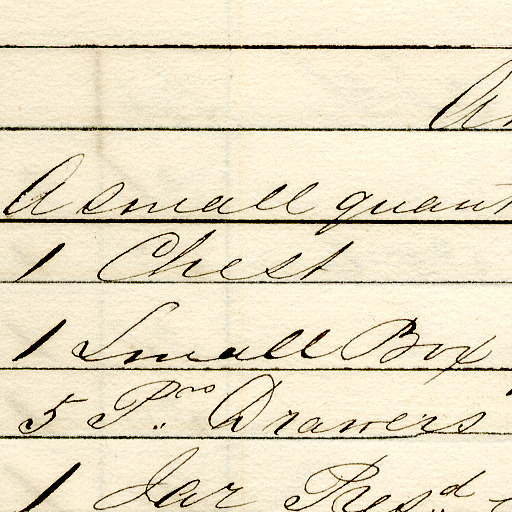 A small quant
1 Chest
1 Small Box
5 Prs Drawers
1 Jar Resd